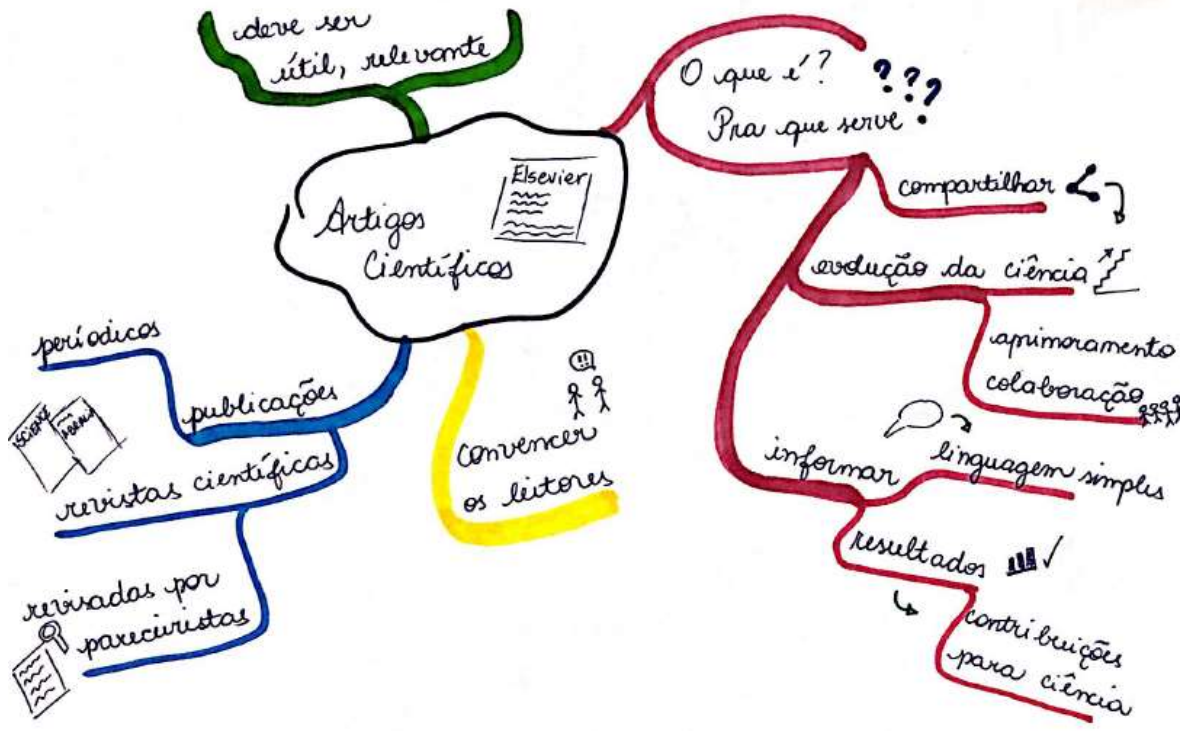 deve ser
útil, relevante
O que é?
???
Pra que serve
Elsevier
Artigos
Científicos
compartilhar
evolução da ciência
aprimoramento
colaboração
informar
linguagem simples
resultados
contribuições
para ciência
convencer
os leitores
!!
períodicos
publicações
SCIENCE
revistas científicas
revisadas por
pareciristas